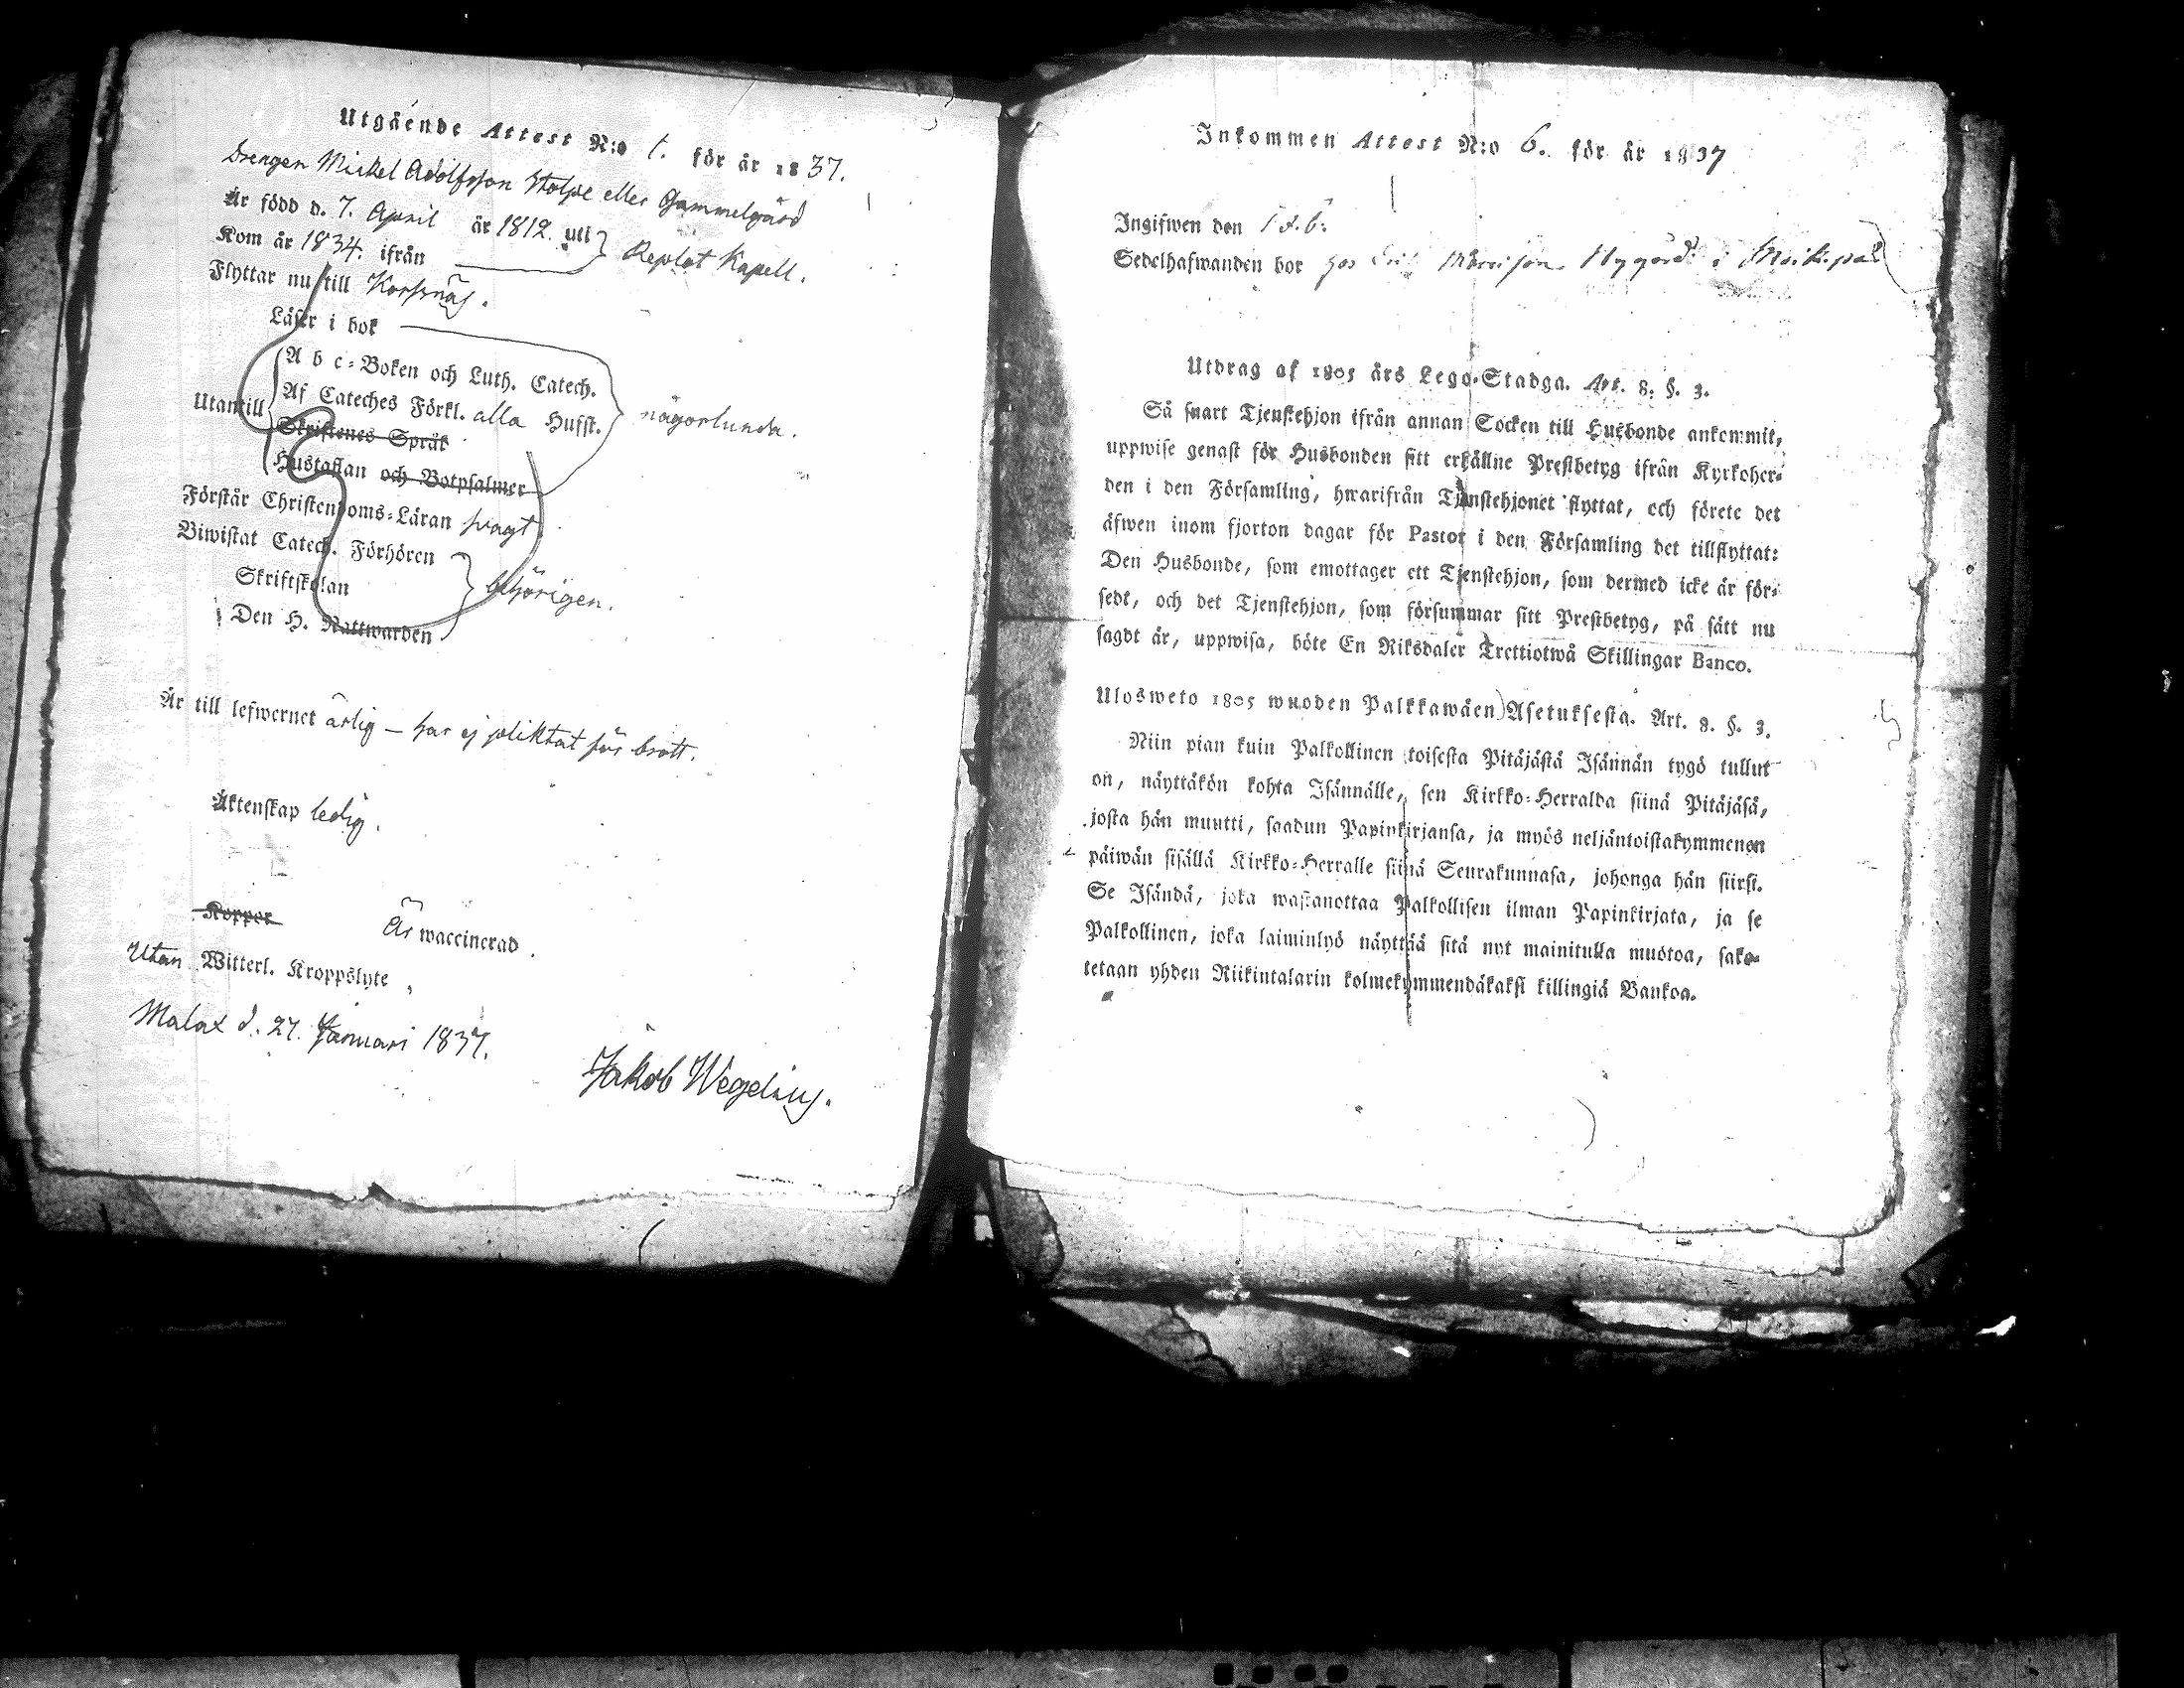 Utgående Attest N:o 1. för år 1837.
Drengen Mickel Adolfsson Stolpe eller Gammelgård
Är född d. 7. April år 1812. uti
Kom år 1834. ifrån Replot Kapell.
Flyttar nu till Korsnäs.
Läser i bok
A b c-Boken och Luth. Catech.
Af Cateches Förkl. alla Hufst. någorlunda.
Utantill
Skriftenes Språk
Hustaflan och Botpsalmer
Förstår Christendoms-Läran svagt
Biwistat Catech. Förhören
Skriftskolan behörigen.
Den H. Nattwarden
Är till lefwernet ärlig – har ej pliktat för brott.
Äktenskap ledig.
Koppor Är waccinerad.
Utan Witterl. Kroppslyte,
Malax d. 27. Januari 1837.
Jakob Wegelius.
Inkommen Attest N:o 6. för år 1837
Ingifwen den
Sedelhafwanden bor hos Nygård i
Utdrag af 1805 års Lego-Stadga. Art. 8. §. 3.
Så snart Tjenstehjon ifrån annan Socken till Husbonde ankommit,
uppwise genast för Husbonden sitt erhållne Prestbetyg ifrån Kyrkoher-
den i den Församling, hwarifrån Tjenstehjonet flyttat, och förete det
äfwen inom fjorton dagar för Pastor i den Församling det tillflyttat:
Den Husbonde, som emottager ett Tjenstehjon, som dermed icke är för-
sedt, och det Tjenstehjon, som försummar sitt Prestbetyg, på sätt nu
sagdt är, uppwisa, böte En Riksdaler Trettiotwå Skillingar Banco.
Ulosweto 1805 wuoden Palkkawäen Asetuksesta. Art. 8. §. 3.
Niin pian kuin Palkollinen toisesta Pitäjästä Isännän tygö tullut
on, näyttäkön kohta Isännälle, sen Kirkko-Herralda siinä Pitäjäsä,
josta hän muutti, saadun Papinkirjansa, ja myös neljäntoistakymmenen
päiwän sisällä Kirkko-Herralle siinä Seurakunnasa, johonga hän siirsi.
Se Isändä, joka wastanottaa Palkollisen ilman Papinkirjata, ja se
Palkollinen, joka laiminlyö näyttää sitä nyt mainitulla muotoa, sako-
tetaan yhden Riikintalarin kolmekymmendäkaksi killingiä Bankoa.